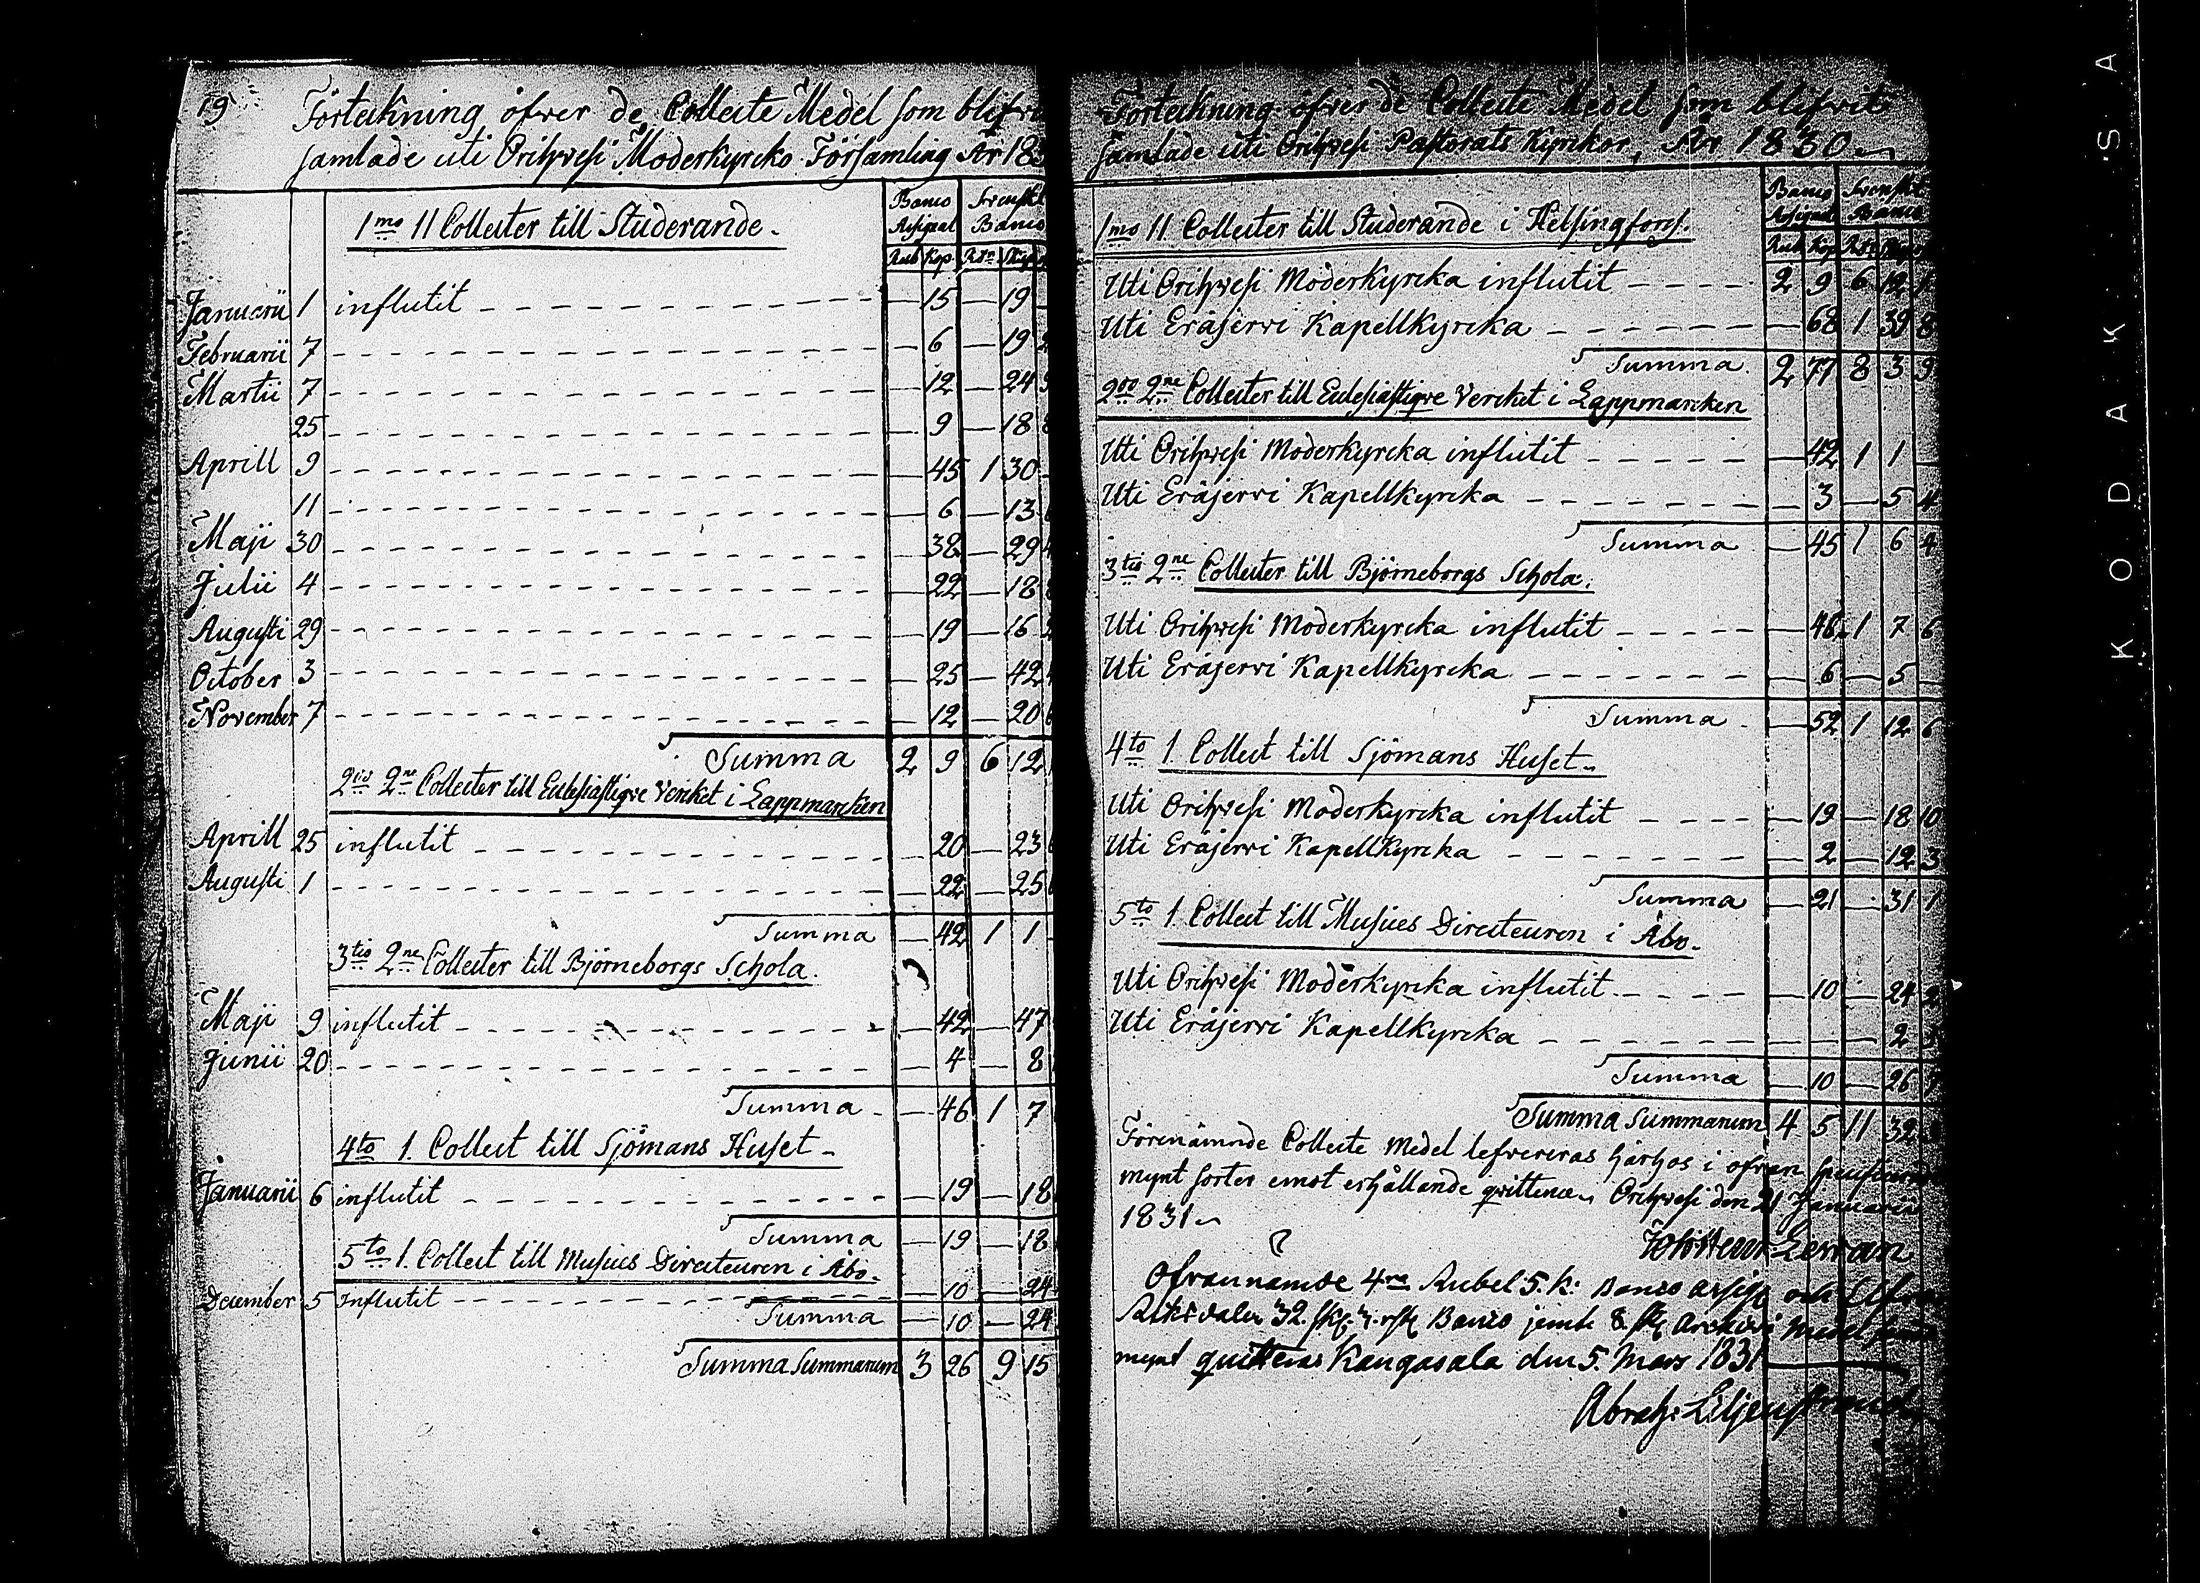 19
Förteckning öfver de Collecte Medel som blifvi
samlade uti Orihvesi Moderkyrcko Församling År 183
Banco Svenskt
1mo 11 Collecter till Studerande. Assignat Banco
Rub Kop Rdr Skg
Januarii 1 influtit — 15 — 19
Februarii 7 — 6 — 19
Martii 7 — 12 — 24
25 — 9 — 18
Aprill 9 — 45 1 30
11 — 6 — 13
Maji 30 — 38 — 29
Julii 4 — 22 — 18
Augusti 29 — 19 — 16
October 3 — 25 — 42
November 7 — 12 — 20
Summa 2 9 6 12
2do 2ne Collecter till Eclesiastiqve Vercket i Lappmarcken
Aprill 25 influtit — 20 — 23
Augusti 1 — 22 — 25
Summa — 42 1 1
3tio 2ne Collecter till Björneborgs Schola.
Maji 9 influtit — 42 — 47
Junii 20 — 4 — 8
Summa — 46 1 7
4to 1. Collect till Sjömans Huset
Januarii 6 influtit — 19 — 18
Summa — 19 — 18
5to 1. Collect till Musices Directeuren i Åbo.
December 5 Influtit — 10 — 24
Summa — 10 — 24
Summa Summarum 3 26 9 15
Förteckning öfver de Collecte Medel som blifvit
samlade uti Orihvesi Pastorats Kyrckor, År 1830
Banco Svenskt
1mo 11 Collecter till Studerande i Helsingfors. Assignat Banco
Rub Kop Rdr
Uti Orihvesi Moderkyrcka influtit 2 9 6 12 1
Uti Eräjervi Kapellkyrcka — 68 1 39 8
Summa 2 77 8 3 9
2do 2ne Collecter till Eclesiastiqve Vercket i Lappmarcken
Uti Orihvesi Moderkyrcka influtit — 42 1 1 —
Uti Eräjervi Kapellkyrcka — 3 — 5 4
Summa — 45 1 6 4
3tio 2ne Collecter till Björneborgs Schola.
Uti Orihvesi Moderkyrcka influtit — 46 1 7 6
Uti Eräjervi Kapellkyrcka — 6 — 5 —
Summa — 52 1 12 6
4to 1. Collect till Sjömans Huset
Uti Orihvesi Moderkyrcka influtit — 19 — 18 10
Uti Eräjervi Kapellkyrcka — 2 — 12 3
Summa — 21 — 31 1
5to 1. Collect till Musices Directeuren i Åbo.
Uti Orihvesi Moderkyrcka influtit — 10 — 24 2
Uti Eräjervi Kapellkyrcka — — — 2
Summa — 10 — 26 7
Summa Summarum 4 5 11 32
Förenämnde Collecte Medel lefvereras härhos i ofvan
mynt sorter emot erhållande qvittence. Orihvesi den 21 Januarii
1831
Ofvannämde 4ra Rubel 5. k: Banco assign och Elfva
Riksdaler 32 sk: 3. rst Banco jemte 8 sk Archivi Medel
mynt quitteras Kangasala den 5. Mars 1831
Abrah: Liljenstrand
KODAK S A